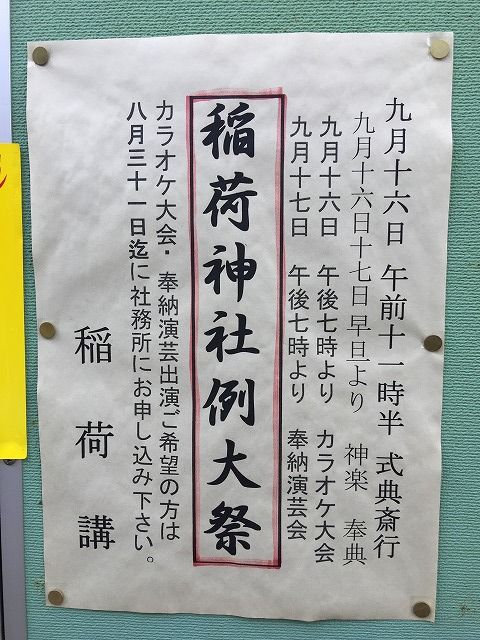 九月十六日 午前十一時半 式典斎行
九月十六日十七日 早旦より 神楽 奉典
九月十六日 午後七時より カラオケ大会
九月十七日 午後七時より 奉納演芸会
稲荷神社例大祭
カラオケ大会・奉納演芸出演ご希望の方は
八月三十一日迄に社務所にお申し込み下さい。
稲荷講